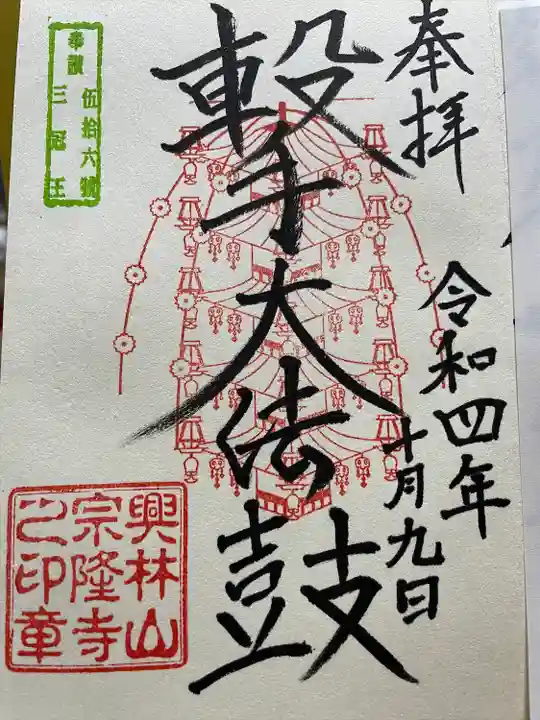 奉拝
令和四年
十月九日
撃大法鼓
奉讃
伍拾六號
三冠王
興林山
宗隆寺
之印章